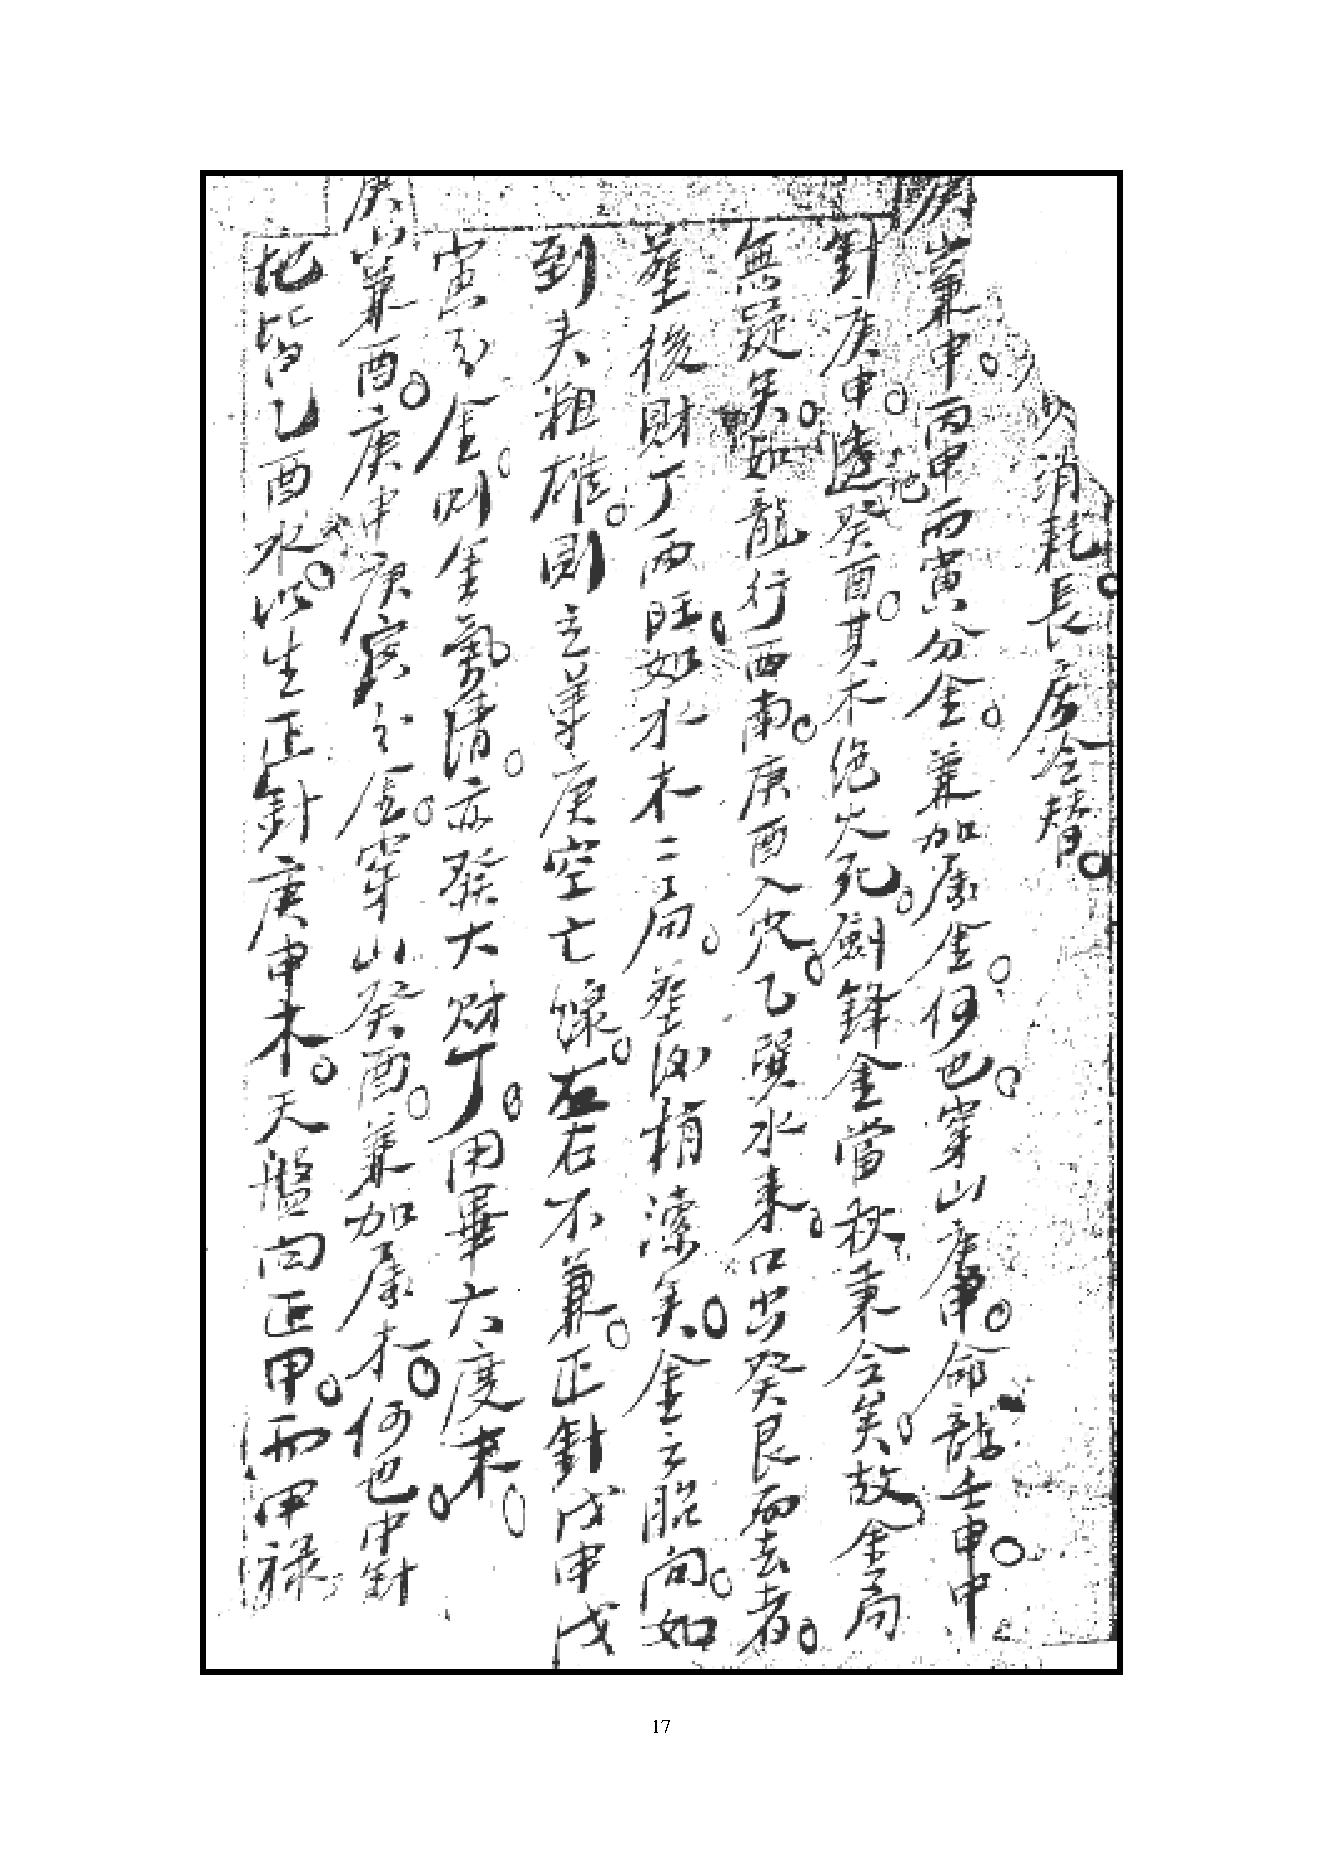 消耗長房冷替
庚山兼申丙申丙寅分金兼加屬金何也穿山庚申命龍壬申中
針庚申遶地癸酉其木絕火死劍鋒金當秋秉令矣故金局
無疑矣如龍行西南庚酉入穴乙巽水來口出癸艮而去者
塟後財丁两旺如水木二局塟後稍澟矣金之胎向如
到夫粗雄則主葬庚空亡線左右不兼正針戊申戊
寅分金則金氣清亦發大財丁用畢六度来
庚山兼酉庚申庚寅分金穿山癸酉兼加屬木何也中針
地皆乙酉水以生正針庚申木天盤向正甲而甲祿
17